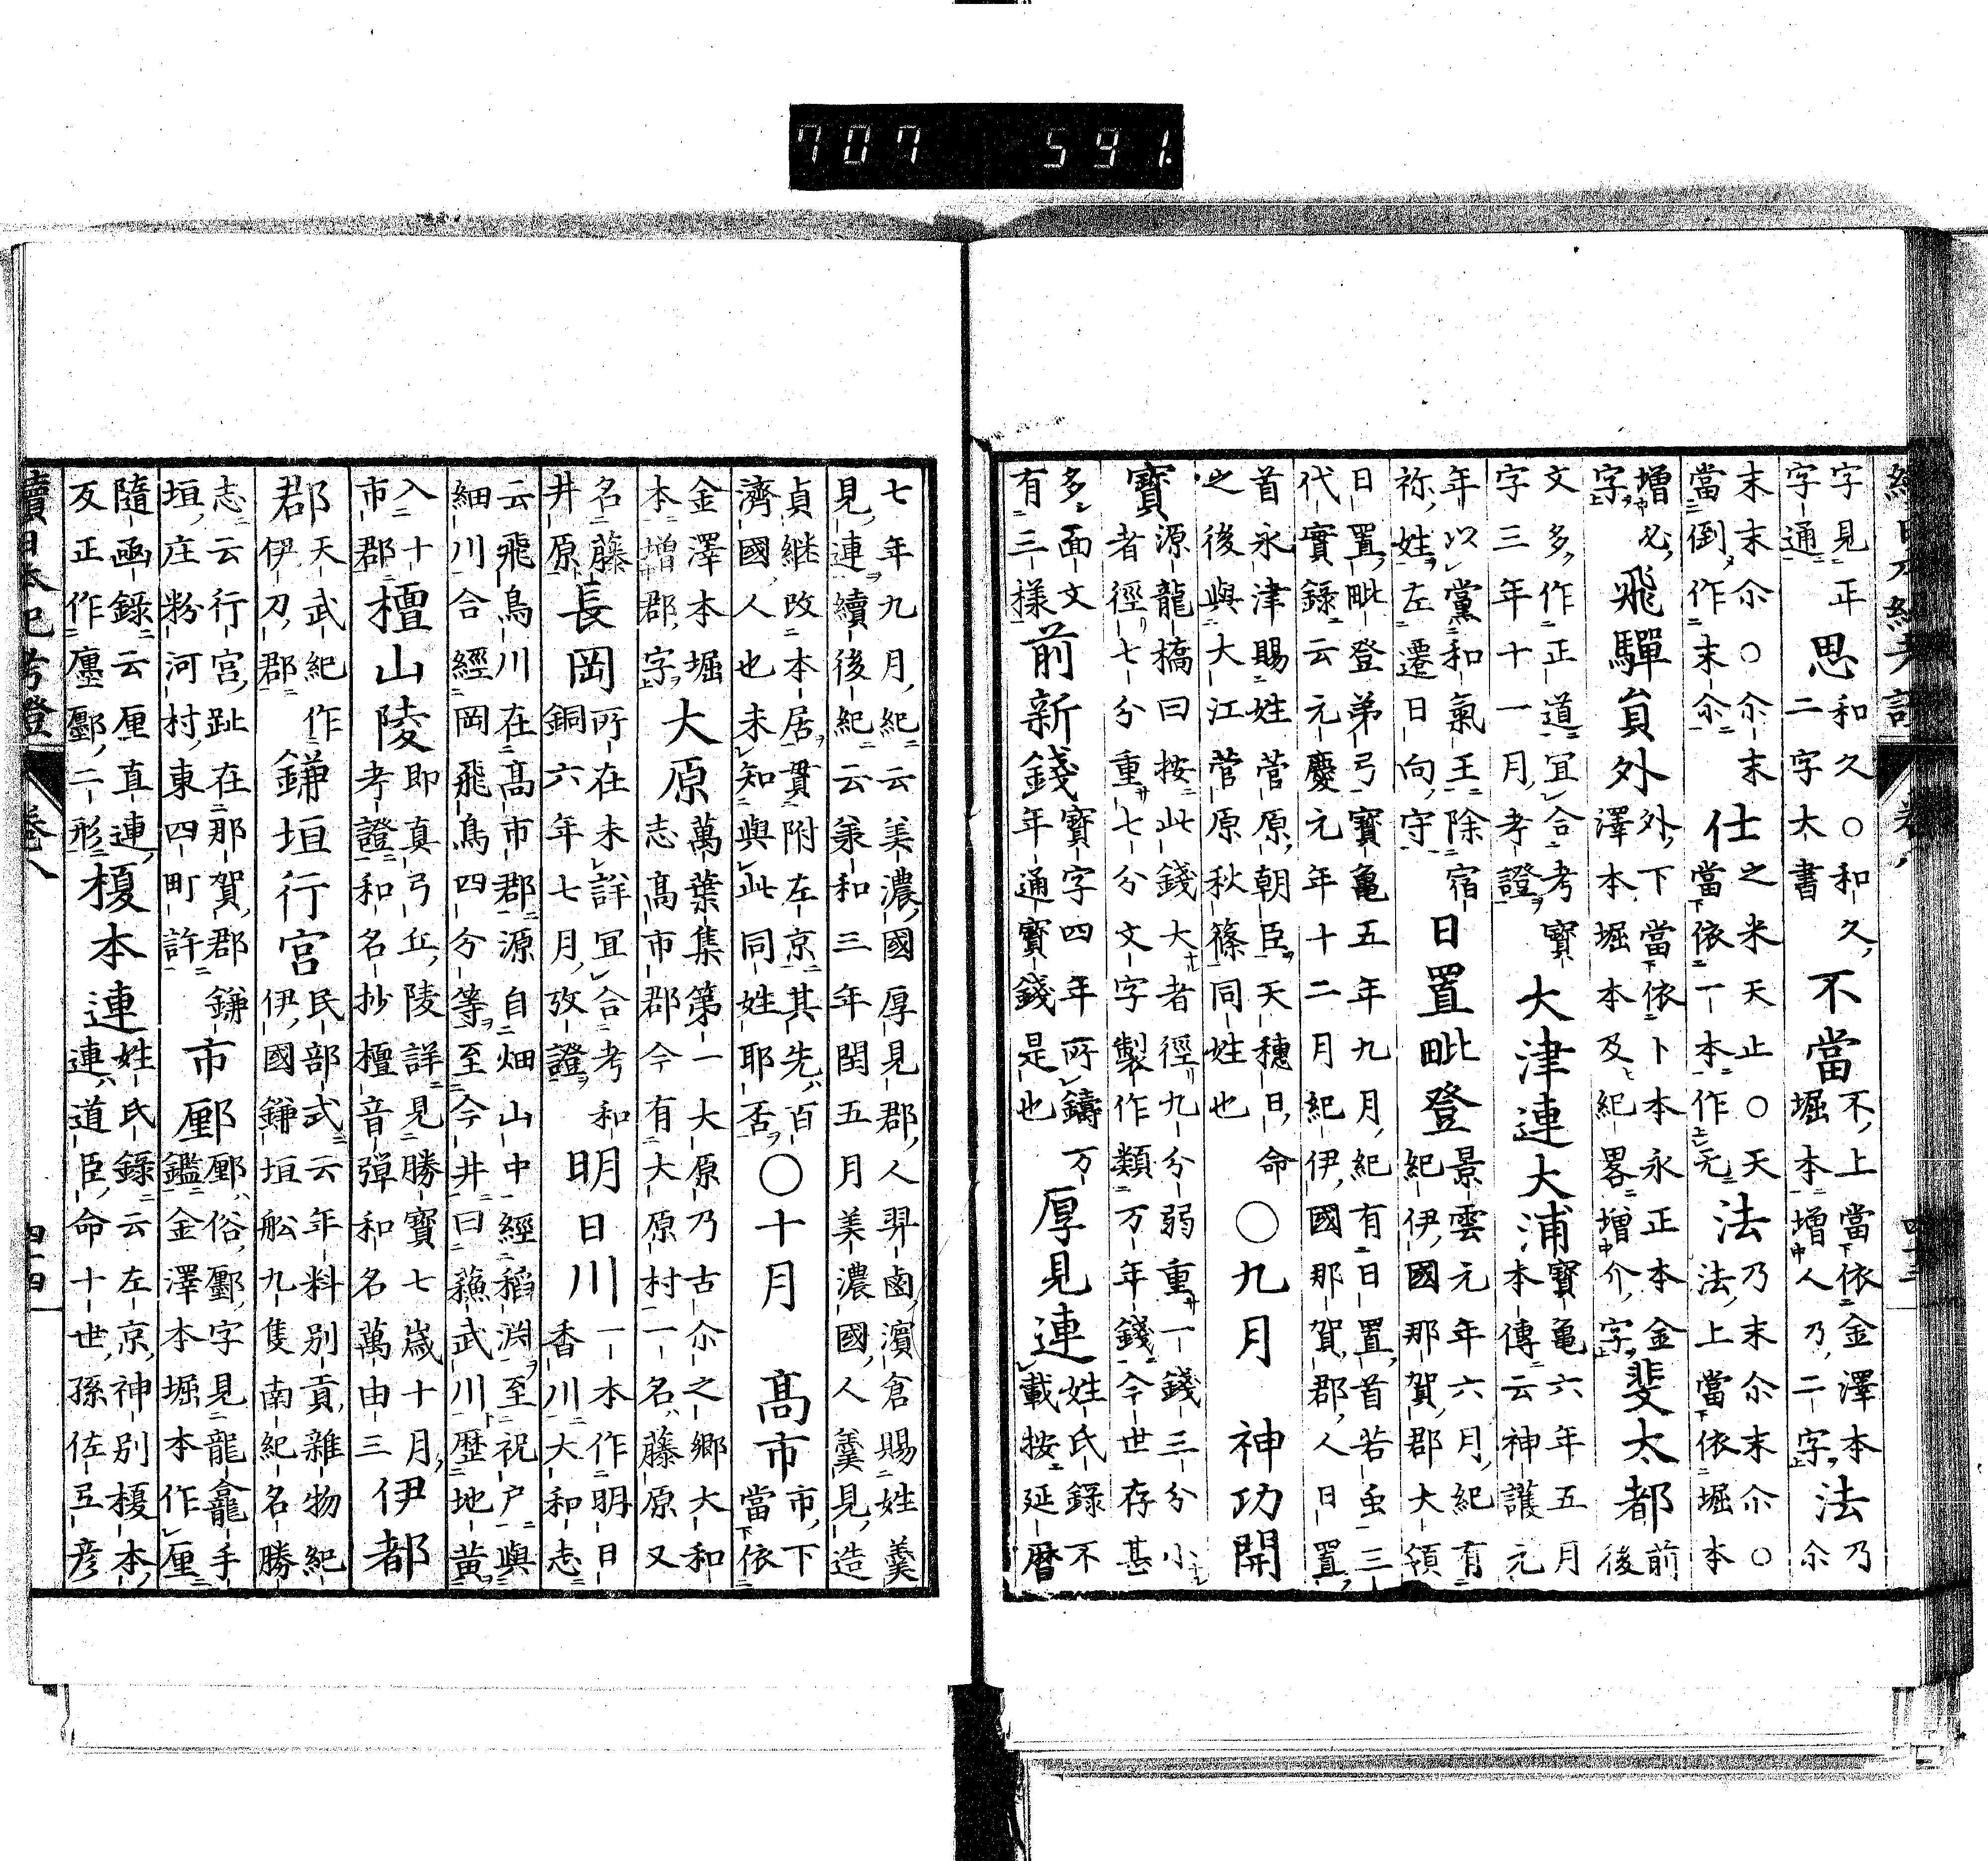 續日本紀考證 卷八 四十三
字見正字通 思 和久○和久二字大書 不當 不上當依金澤本堀本增人乃二字 法 乃尒
末末尒○尒末末當倒作末尒 仕 之米天止○天當依一本作无 法 乃末尒末尒○法上當依堀本
增必字 飛驒員外 外下當依卜本永正本金澤本堀本及紀畧增介字 斐太都 前後
文多作正道宜合考寶字三年十一月考證 大津連大浦 寶龜六年五月本傳云神護元
年以黨和氣王除宿祢姓左遷日向守 日置毗登 景雲元年六月紀有紀伊國那賀郡大領
日置毗登弟弓寶龜五年九月紀有日置首若虫三代實錄云元慶元年十二月紀伊國那賀郡人日置
首永津賜姓菅原朝臣天穗日命之後與大江菅原秋篠同姓也 ○九月 神功開
寶 源龍橋曰按此錢大者徑九分弱重一錢三分小者徑七分重七分文字製作類万年錢今世存甚
多面文有三樣 前新錢 寶字四年所鑄万年通寶錢是也 厚見連 姓氏錄不載按延曆
七年九月紀云美濃國厚見郡人羿鹵濱倉賜姓羹見連續後紀云兼和三年閏五月美濃國人羹見造
貞継改本居貫附左京其先百濟國人也未知與此同姓耶否 ○十月 髙市 市下當依
金澤本堀本增郡字 大原 萬葉集第一大原乃古尒之鄉大和志髙市郡今有大原村一名藤原又
名藤井原 長岡 所在未詳宜合考和銅六年七月攷證 明日川 一本作明日香川大和志
云飛鳥川在髙市郡源自畑山中經稻渕至祝户與細川合經岡飛鳥四分等至今井曰蘓武川歷地黃
入十市郡 檀山陵 即真弓丘陵詳見勝寶七歲十月考證和名抄檀音彈和名萬由三 伊都
郡 天武紀作伊刀郡 鎌垣行宮 民部式云年料別貢雜物紀伊國鎌垣舩九隻南紀名勝
志云行宮趾在那賀郡鎌垣庄粉河村東四町許 市 俗字見龍龕手鑑金澤本堀本作厘
隨函錄云厘直連反正作二形 榎本連 姓氏錄云左京神別榎本連道臣命十世孫佐弖彦
續日本紀考證 卷八 四十四